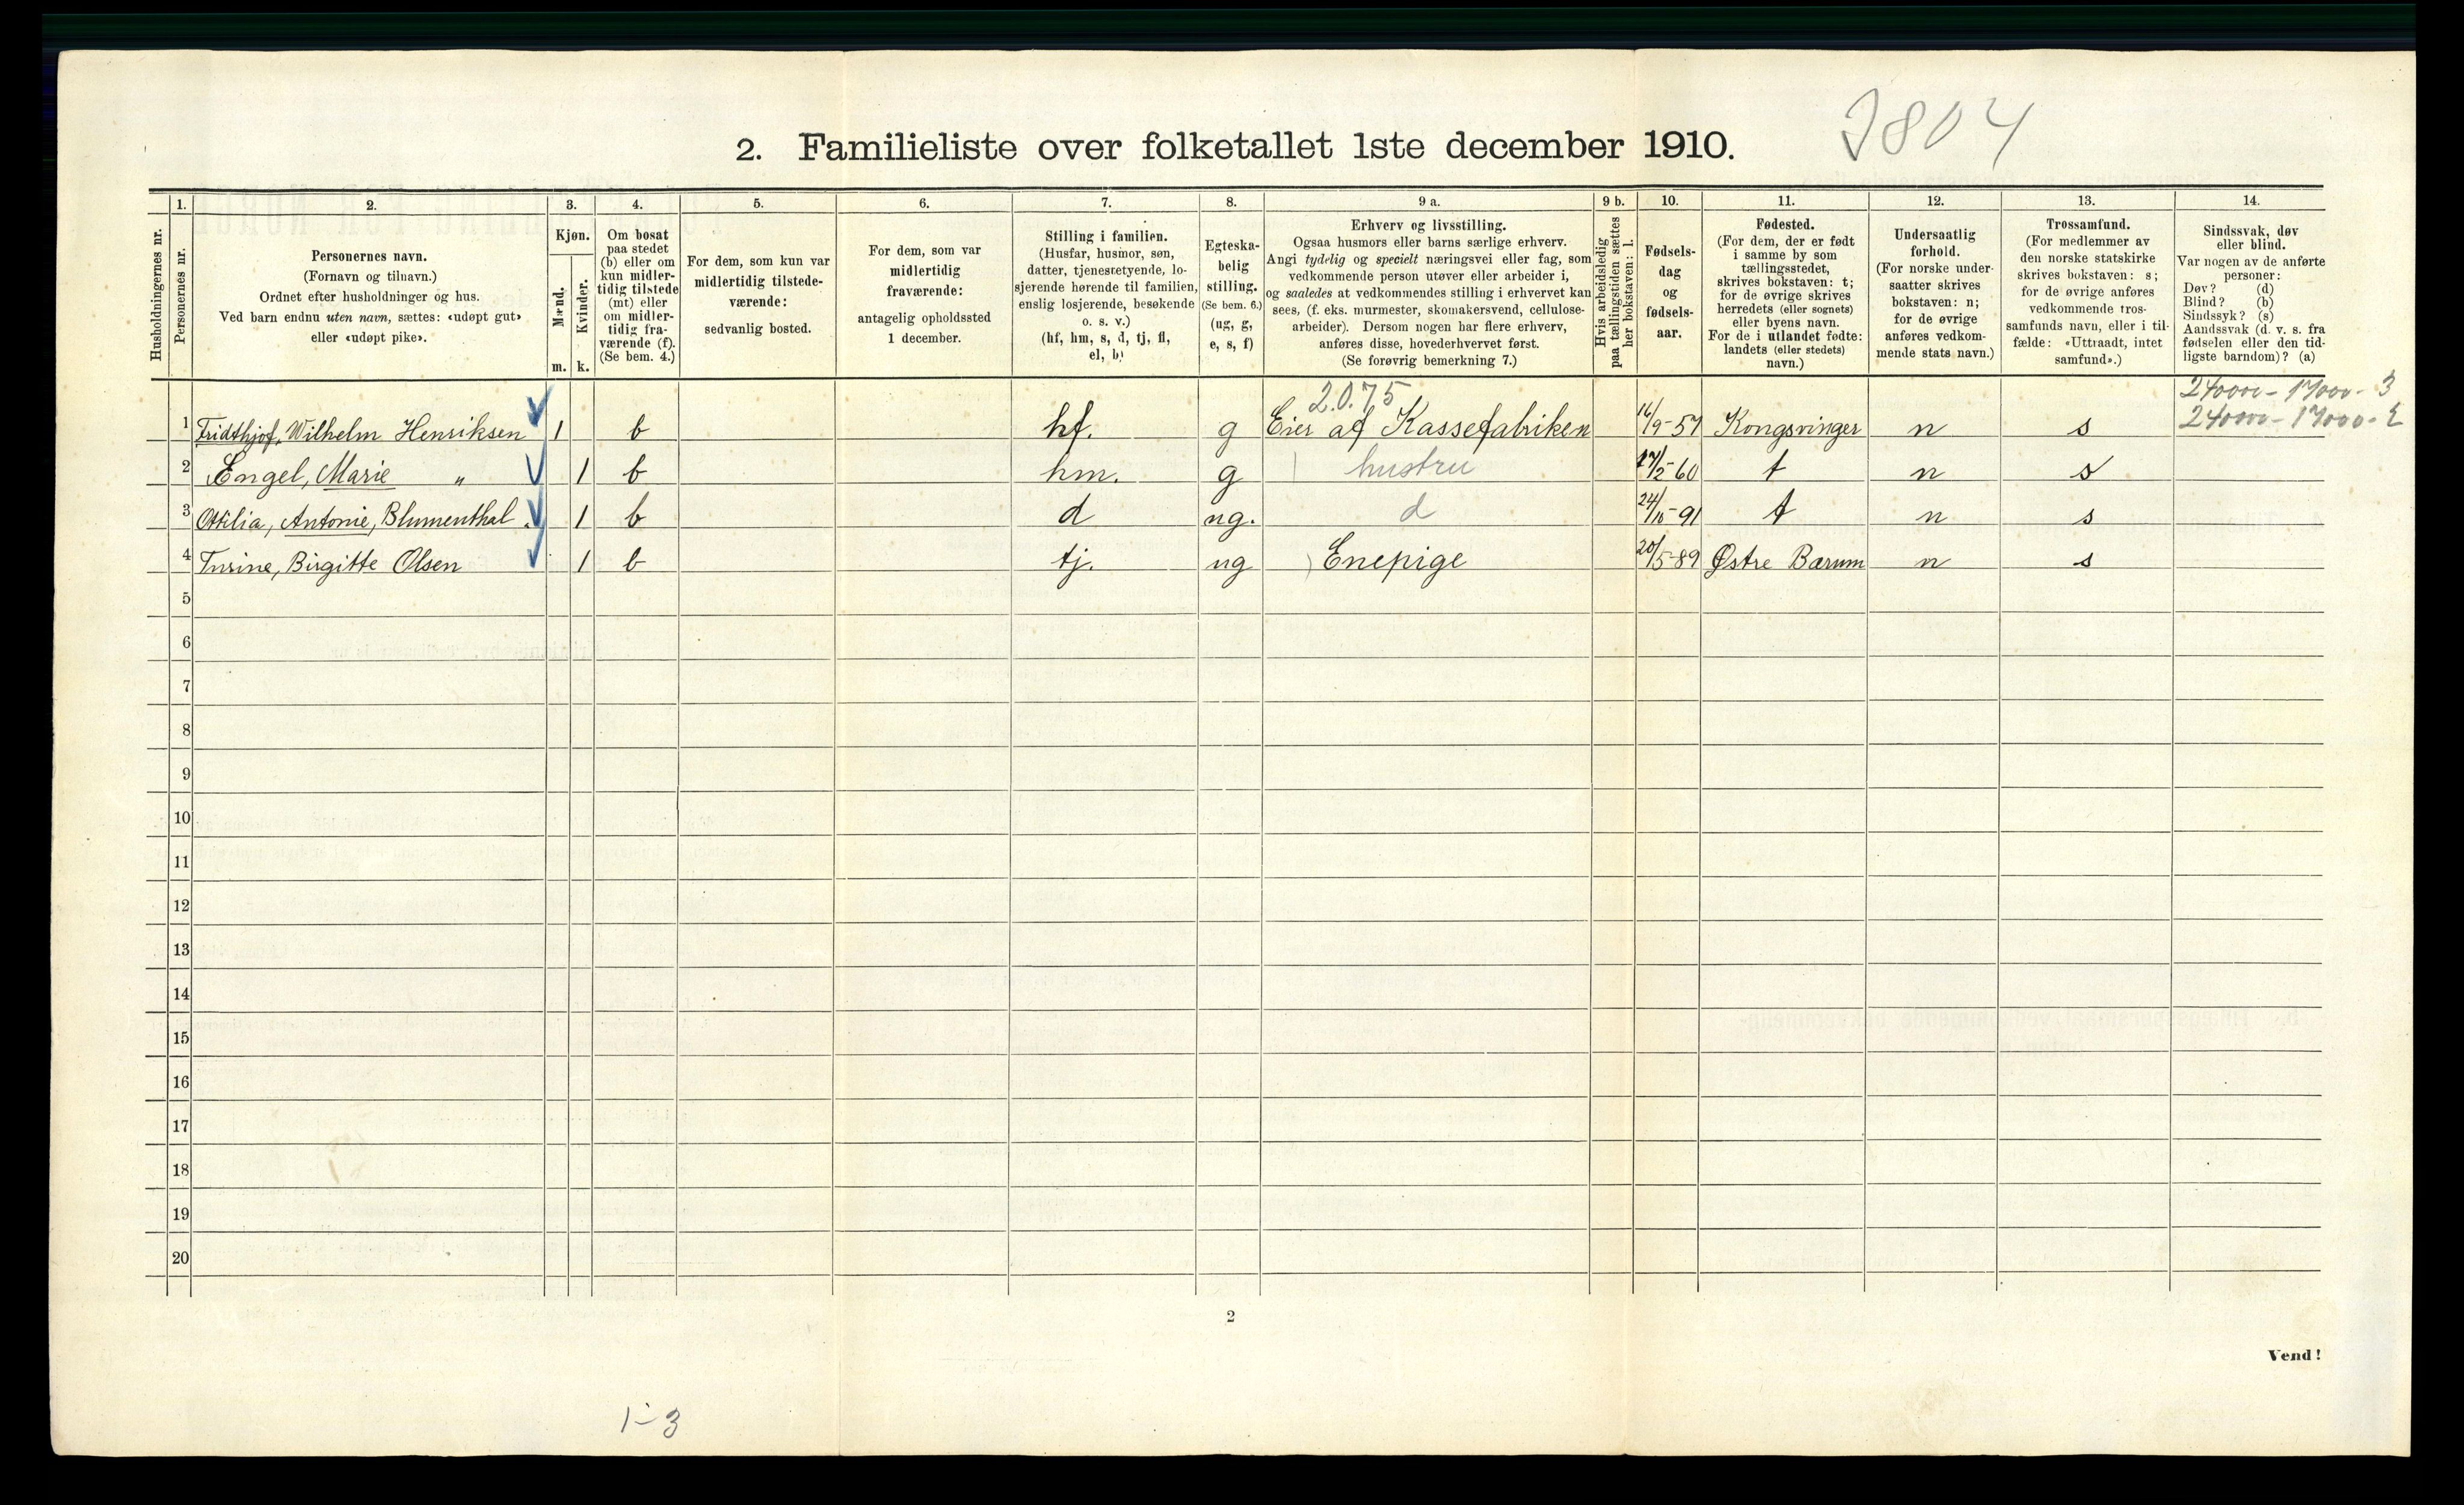 2804
2. Familieliste over folketallet 1ste december 1910.
Husholdningernes nr.
1.
Personernes nr.
2.
Personernes navn.
(Fornavn og tilnavn.)
Ordnet efter husholdninger og hus.
Ved barn endnu uten navn, sættes: «udøpt gut»
eller «udøpt pike».
3.
Kjøn.
Mænd.
Kvinder.
m. k.
4.
Om bosat
paa stedet
(b) eller om
kun midler-
tidig tilstede
(mt) eller
om midler-
tidig fra-
værende (f).
(Se bem. 4.)
5.
For dem, som kun var
midlertidig tilstede-
værende:
sedvanlig bosted.
6.
For dem, som var
midlertidig
fraværende:
antagelig opholdssted
1 december.
7.
Stilling i familien.
(Husfar, husmor, søn,
datter, tjenestetyende, lo-
sjerende hørende til familien,
enslig losjerende, besøkende
o. s. v.)
(hf, hm, s, d, tj, fl,
el, b)
8.
Egteska-
belig
stilling.
(Se bem. 6.)
(ug, g,
e, s, f)
9 a.
Erhverv og livsstilling.
Ogsaa husmors eller barns særlige erhverv.
Angi tydelig og specielt næringsvei eller fag, som
vedkommende person utøver eller arbeider i,
og saaledes at vedkommendes stilling i erhvervet kan
sees, (f. eks. murmester, skomakersvend, cellulose-
arbeider). Dersom nogen har flere erhverv,
anføres disse, hovederhvervet først.
(Se forøvrig bemerkning 7.)
9 b.
Hvis arbeidsledig
paa tællingstiden sættes
her bokstaven: l.
10.
Fødsels-
dag
og
fødsels-
aar.
11.
Fødested.
(For dem, der er født
i samme by som
tællingsstedet,
skrives bokstaven: t;
for de øvrige skrives
herredets (eller sognets)
eller byens navn.
For de i utlandet fødte:
landets (eller stedets)
navn.)
12.
Undersaatlig
forhold.
(For norske under-
saatter skrives
bokstaven: n;
for de øvrige
anføres vedkom-
mende stats navn.)
13.
Trossamfund.
(For medlemmer av
den norske statskirke
skrives bokstaven: s;
for de øvrige anføres
vedkommende tros-
samfunds navn, eller i til-
fælde: «Uttraadt, intet
samfund».)
14.
Sindssvak, døv
eller blind.
Var nogen av de anførte
personer:
Døv? (d)
Blind? (b)
Sindssyk? (s)
Aandssvak (d. v. s. fra
fødselen eller den tid-
ligste barndom)? (a)
2.0.75
24000 - 17000 - 3
24000 - 17000 - 2
1 Fridthjof, Wilhelm Henriksen 1 b hf. g Eier af Kassefabriken 16/9-57 Kongsvinger n s
2 Engel, Marie " 1 b hm. g hustru 17/2-60 t n s
3 Ottilia, Antonie, Blumenthal. 1 b d ug. d 24/10-91 t n s
4 Turine, Birgitte Olsen 1 b tj. ug Enepige 20/5-89 Østre Bærum n s
5
6
7
8
9
10
11
12
13
14
15
16
17
18
19
20
2
Vend!
1-3